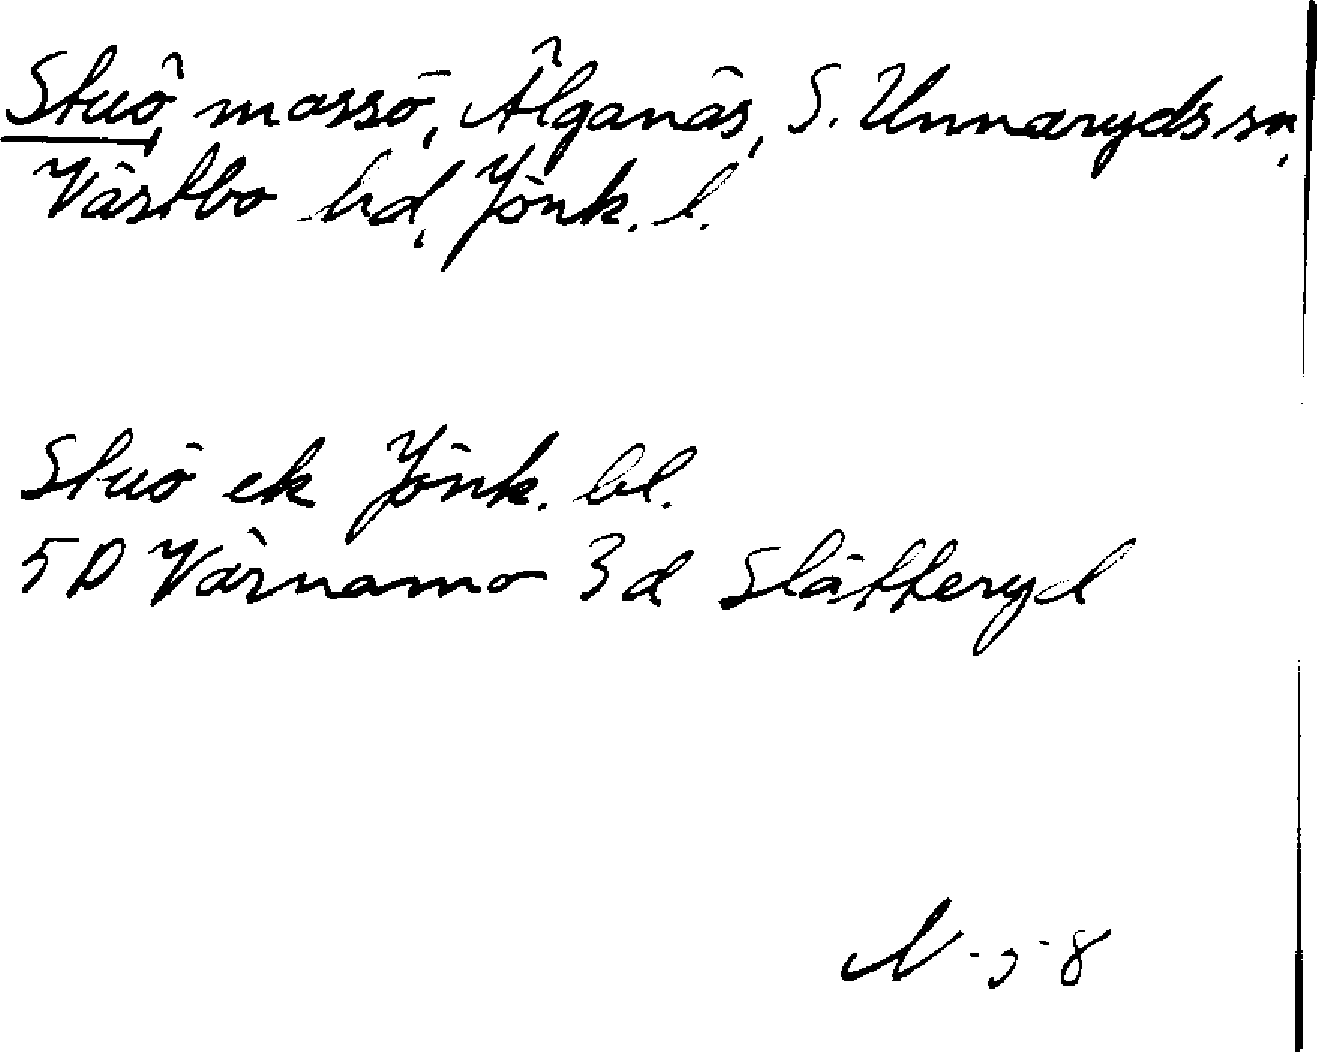 Stuö, mossö, Älganäs, S. Unnaryds sn,
Västbo hd, Jönk. l.
Stuö ek Jönk. bl.
5D Värnamo 3d Slätteryd
N-58